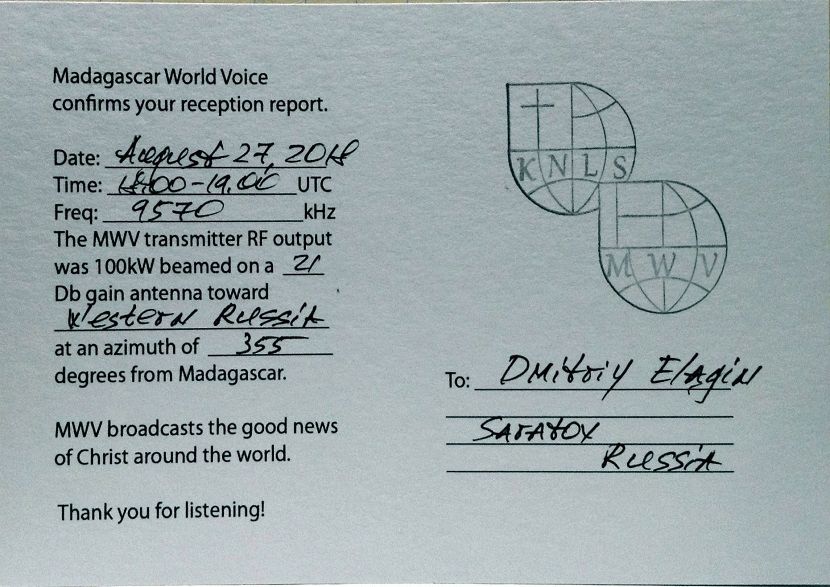 Madagascar World Voice
confirms your reception report.
Date: August 27, 2018
Time: 18.00-19.00 UTC
Freq: 9570 kHz
The MWV transmitter RF output
was 100kW beamed on a 21
Db gain antenna toward
Western Russia
at an azimuth of 355
degrees from Madagascar.
MWV broadcasts the good news
of Christ around the world.
Thank you for listening!
KNLS
MWV
To: Dmitriy Elagin
Saratov
Russia